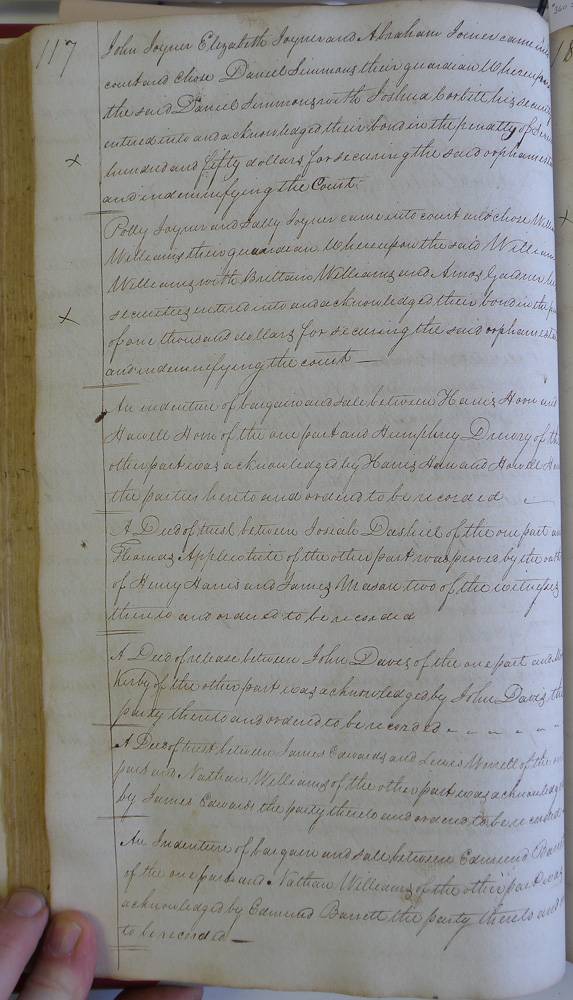 117
John Joyner Elizabeth Joyner and Abraham Joiner came into
court and chose Daniel Simmons their guardian Whereupon
the said Daniel Simmons with Joshua Corbitt his security
entered into and acknowledged their bond in the penalty of Seven
hundred and fifty dollars for securing the said orphans esta
and indemnifying the Court.
x
Polly Joyner and Sally Joyner came into court and chose Willia
Williams their guardian Whereupon the said William
Williams with Brittain Williams and Amos Gardner his
securities entered into and acknowledged their bond in the pe
of one thousand dollars for securing the said orphans esta
x
and indemnifying the court —
An indenture of bargain and sale between Harris Horn and
Howell Horn of the one part and Humphrey Drewry of th
other part was acknowledged by Harris Horn and Howell Ho
the parties hereto and ordered to be recorded
A Deed of trust between Josiah Dashiel of the one part an
Thomas Applewhite of the other part was proved by the oath
of Henry Harris and James Mason two of the witnesses
thereto and ordered to be recorded
A Deed of release between John Daves of the one part and
Kirby of the other part was acknowledged by John Daves the
party thereto and ordered to be recorded - - - - -
A Deed of trust between James Edwards and Lewis Worrell of the one
part and Nathan Williams of the other part was acknowledg
by James Edwards the party thereto and ordered to be recorded
An Indenture of bargain and sale between Edmund Barret
of the one part and Nathan Williams of the other part was
acknowledged by Edmund Barrett the party thereto and
to be recorded —